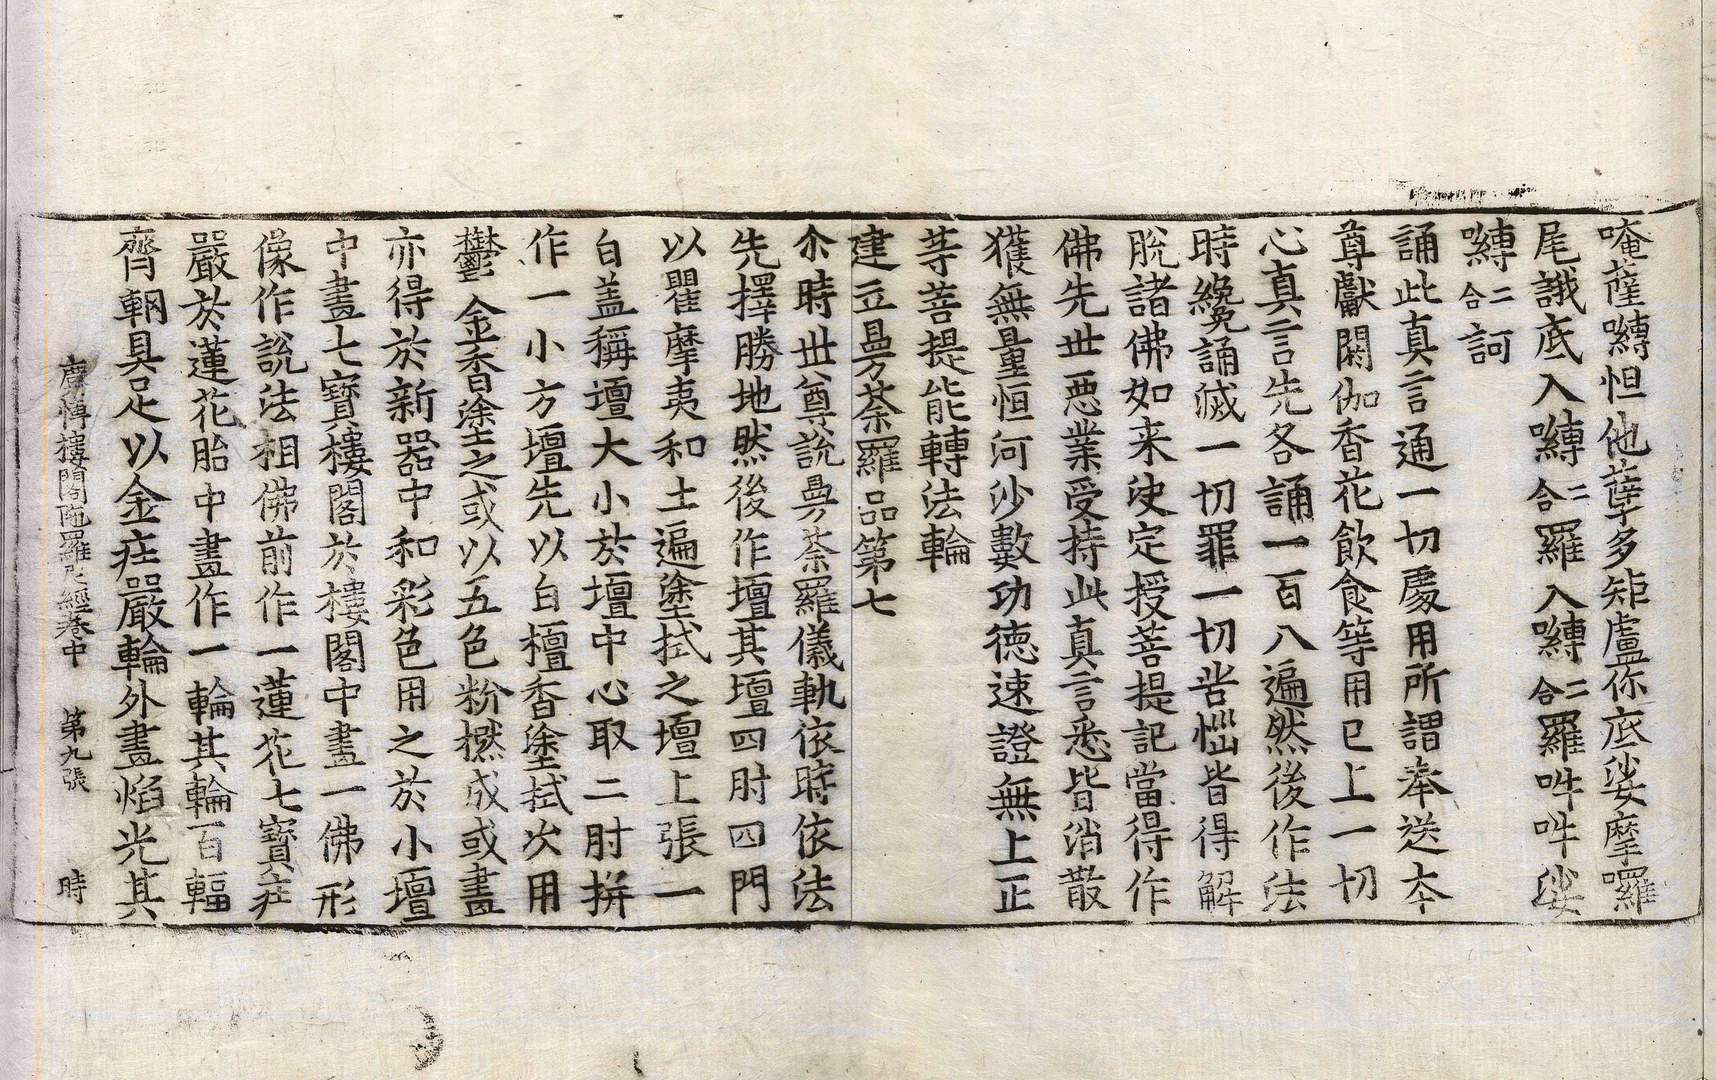 唵薩嚩怛他孽多矩盧你底娑摩囉
尾誐底入嚩二合羅入嚩二合羅吽吽娑
嚩二合訶
誦此真言通一切處用所謂奉送本
尊獻閼伽香花飲食等用已上一切
心真言先各誦一百八遍然後作法
時纔誦滅一切罪一切苦惱皆得解
脫諸佛如来決定授菩提記當得作
佛先世惡業受持此真言悉皆消散
獲無量恒河沙數功德速證無上正
等菩提能轉法輪
建立曼荼羅品第七
尒時世尊說曼荼羅儀軌依時依法
先擇勝地然後作壇其壇四肘四門
以瞿摩夷和土遍塗拭之壇上張一
白盖稱壇大小於壇中心取二肘拼
作一小方壇先以白檀香塗拭次用
欝金香塗之或以五色粉撚成或畫
亦得於新器中和彩色用之於小壇
中畫七寶樓閣於樓閣中畫一佛形
像作說法相佛前作一蓮花七寶庄
嚴於蓮花胎中畫作一輪其輪百輻
齊輞具足以金庄嚴輪外畫焰光其
廣博樓閣陁羅尼經卷中 第九張 時